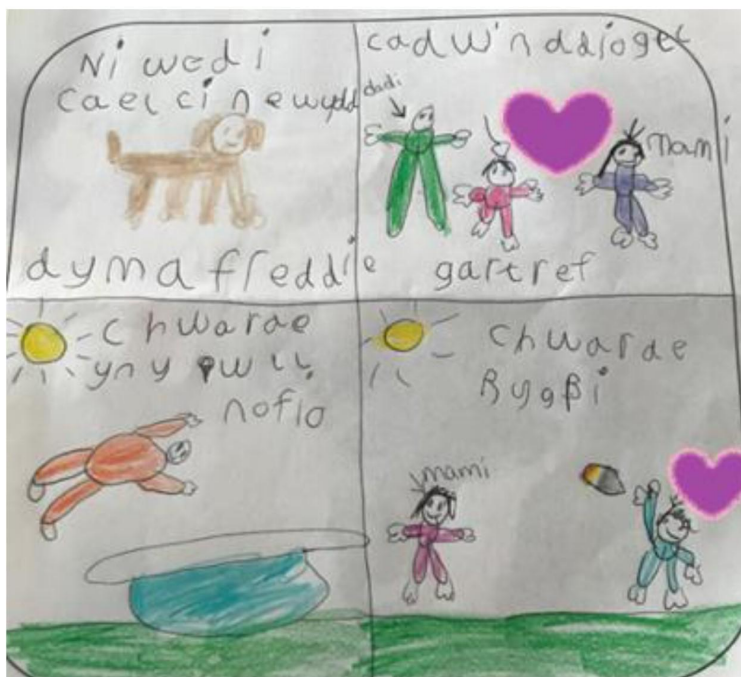 Ni wedi
cael ci newydd
dyma freddie
cadw'n ddiogel
dadi
mami
gartref
chwarae
yn y pwll
nofio
chwarae
Rygbi
mami